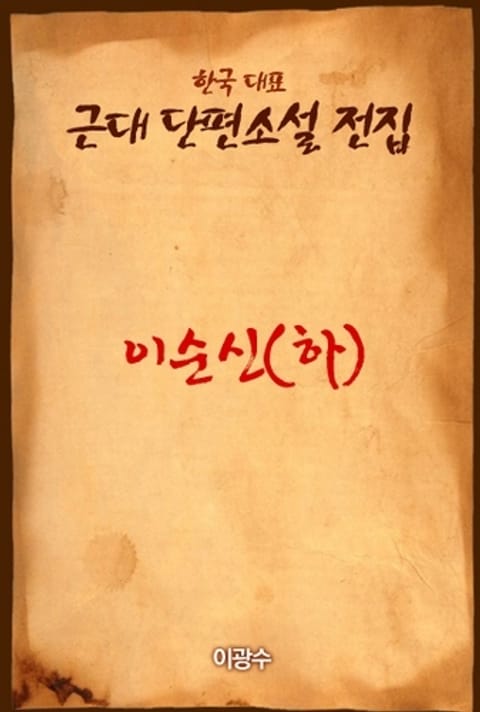 한국 대표
근대 단편소설 전집
이순신(하)
이광수